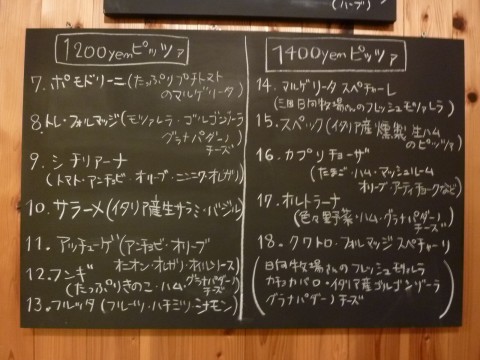 (ハーブ)
1200yenピッツァ
7. ポモドリーニ(たっぷりプチトマト
のマルゲリータ)
8. トレ・フォルマッジ(モッツァレラ・ゴルゴンゾーラ
グラナパダーノ
チーズ)
9. シチリアーナ
(トマト・アンチョビ・オリーブ・ニンニク・オレガノ)
10. サラーメ(イタリア産生サラミ・バジル)
11. アッチューゲ(アンチョビ・オリーブ
オニオン・オレガノ・オイルソース)
12. フンギ
(たっぷりきのこ・ハム・グラナパダーノ
チーズ)
13. フルッタ(フルーツ・ハチミツ・シナモン)
1400yenピッツァ
14. マルゲリータ スペチャーレ
(三田日向牧場さんのフレッシュモッツァレラ)
15. スペック(イタリア産燻製生ハム
のピッツァ)
16. カプリチョーザ
(たまご・ハム・マッシュルーム
オリーブ・アーティチョークなど)
17. オルトラーナ
(色々野菜・ハム・グラナパダーノ
チーズ)
18. クワトロ・フォルマッジ スペチャーリ
(日向牧場さんのフレッシュモッツァレラ
カチョカバロ・イタリア産ゴルゴンゾーラ
グラナパダーノチーズ)